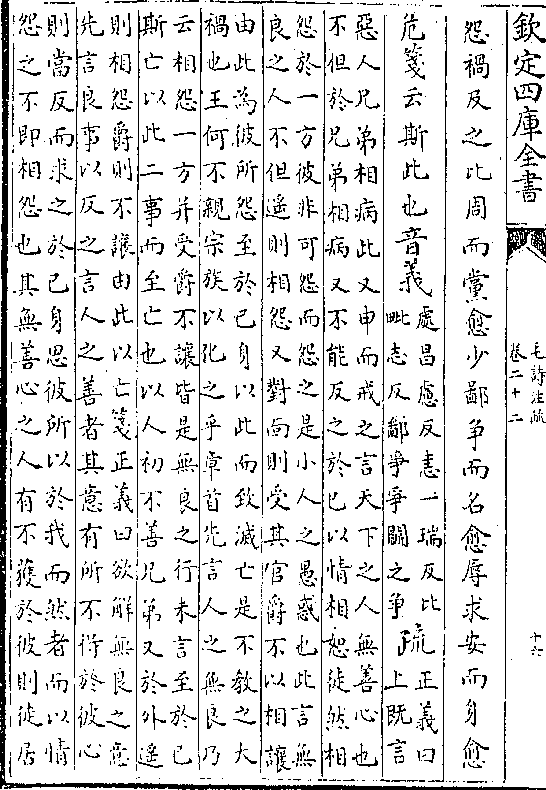 欽定四庫全書
毛詩注疏
卷二十二
十六
怨禍及之比周而黨愈少鄙爭而名愈辱求安而身愈
危箋云斯此也音義
處昌慮反恚一瑞反比
毗志反鄙爭爭鬭之争
疏
正義曰
上既言
惡人兄弟相病此又申而戒之言天下之人無善心也
不但於兄弟相病又不能反之於已以情相恕徒然相
怨於一方彼非可怨而怨之是小人之愚惑也此言無
良之人不但遥則相怨又對面則受其官爵不以相讓
由此為彼所怨至於已身以此而致滅亡是不教之大
禍也王何不親宗族以化之乎章首先言人之無良乃
云相怨一方并受爵不讓皆是無良之行未言至於已
斯亡以此二事而至亡也以人初不善兄弟又於外遥
則相怨爵則不讓由此以亡箋正義曰欲解無良之意
先言良事以反之言人之善者其意有所不得於彼心
則當反而求之於已身思彼所以於我而然者而以情
怨之不即相怨也其無善心之人有不獲於彼則徒居